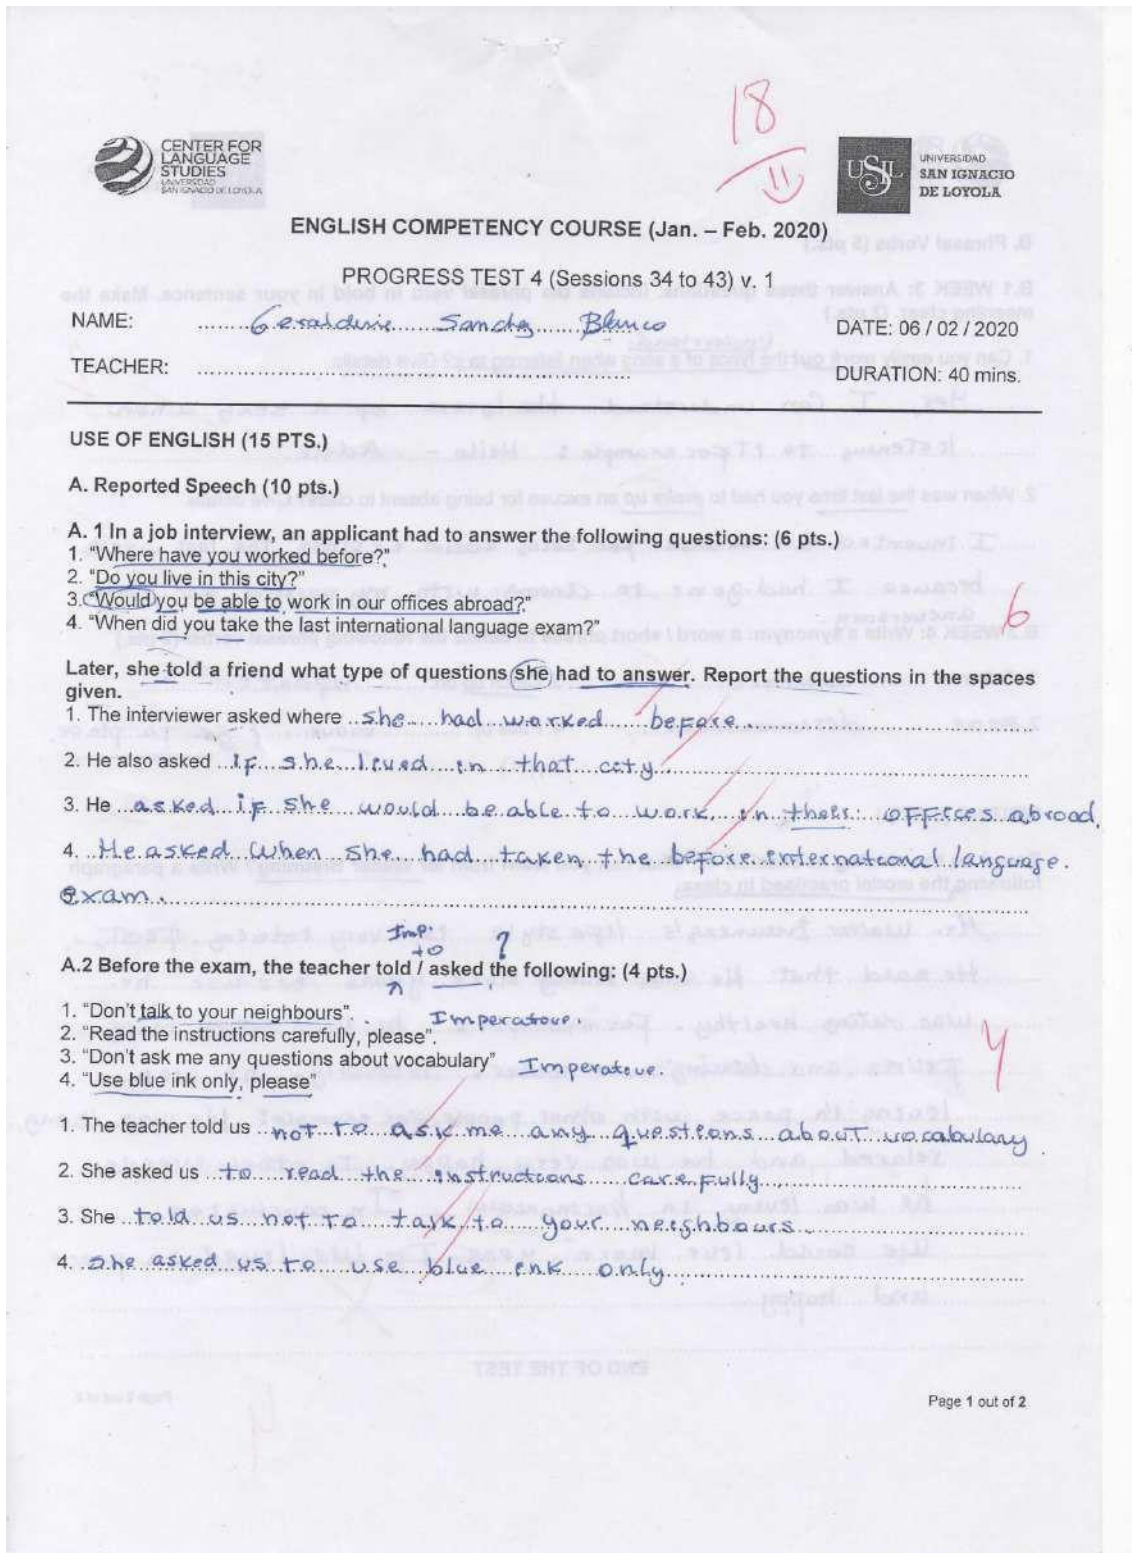 18
CENTER FOR
LANGUAGE
STUDIES
UNIVERSIDAD
SAN IGNACIO DE LOYOLA
USIL
UNIVERSIDAD
SAN IGNACIO
DE LOYOLA
ENGLISH COMPETENCY COURSE (Jan. – Feb. 2020)
PROGRESS TEST 4 (Sessions 34 to 43) v. 1
NAME: Geraldine Sanchez Blanco
DATE: 06 / 02 / 2020
TEACHER:
DURATION: 40 mins.
USE OF ENGLISH (15 PTS.)
A. Reported Speech (10 pts.)
A. 1 In a job interview, an applicant had to answer the following questions: (6 pts.)
1. “Where have you worked before?”
2. “Do you live in this city?”
3. “Would you be able to work in our offices abroad?”
4. “When did you take the last international language exam?”
6
Later, she told a friend what type of questions she had to answer. Report the questions in the spaces
given.
1. The interviewer asked where she had worked before.
2. He also asked if she lived in that city.
3. He asked if she would be able to work in their offices abroad.
4. He asked when she had taken the before international language.
exam.
Imp. ?
to
A.2 Before the exam, the teacher told / asked the following: (4 pts.)
1. “Don't talk to your neighbours”. Imperative.
2. “Read the instructions carefully, please”.
3. “Don't ask me any questions about vocabulary” Imperative.
4. “Use blue ink only, please”
4
1. The teacher told us not to ask me any questions about vocabulary.
2. She asked us to read the instructions carefully.
3. She told us not to talk to your neighbours.
4. She asked us to use blue ink only.
Page 1 out of 2